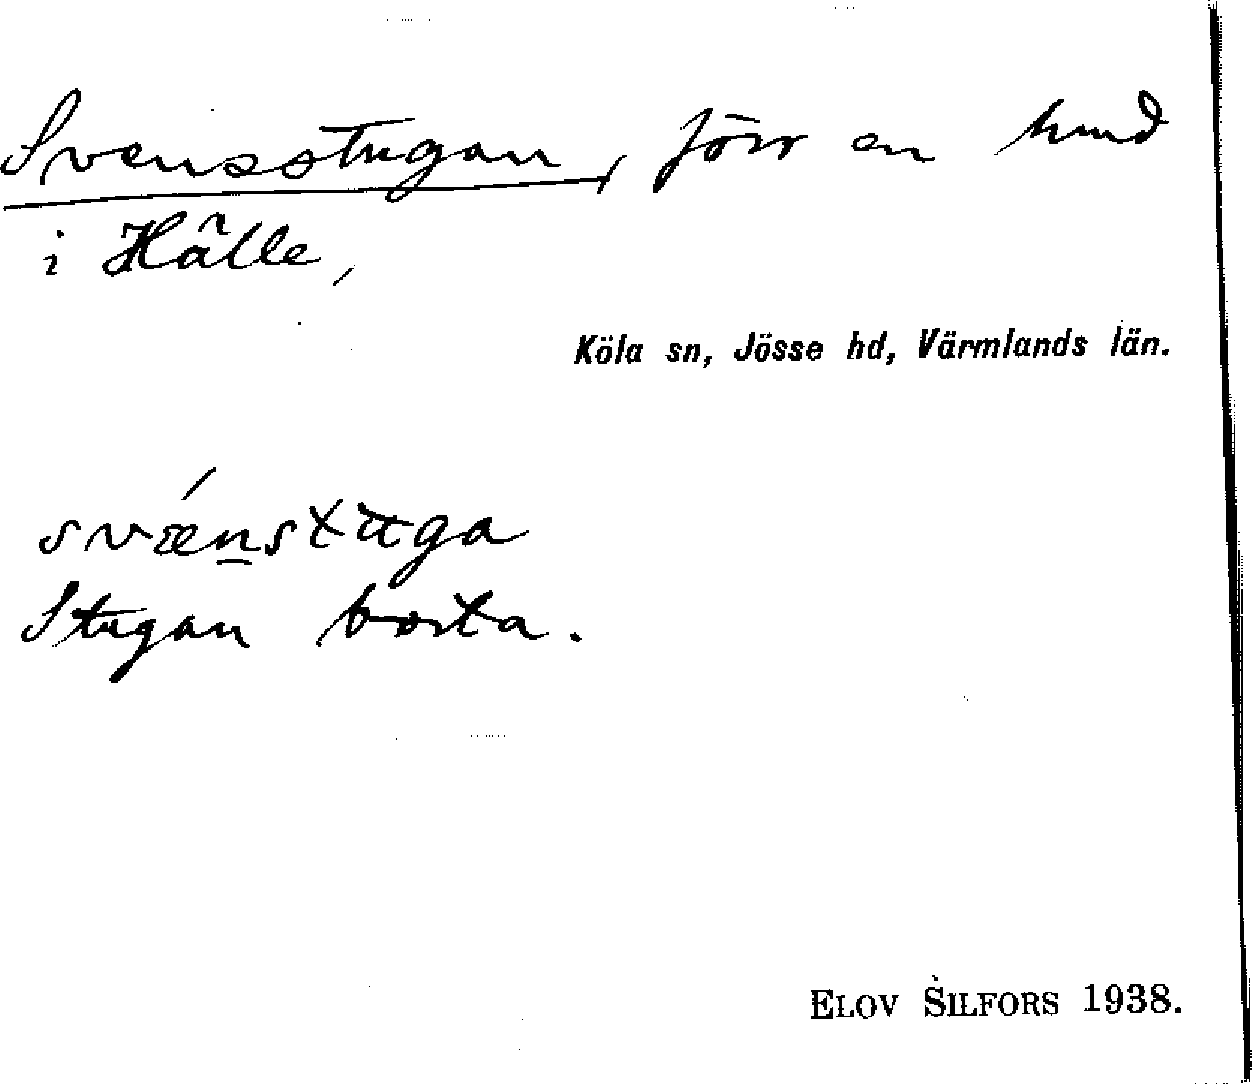 Svensstugan, förr en hmd
i Hålle,
Köla sn, Jösse hd, Värmlands län.
svǽnstuga
Stugan borta.
ELOV SILFORS 1938.